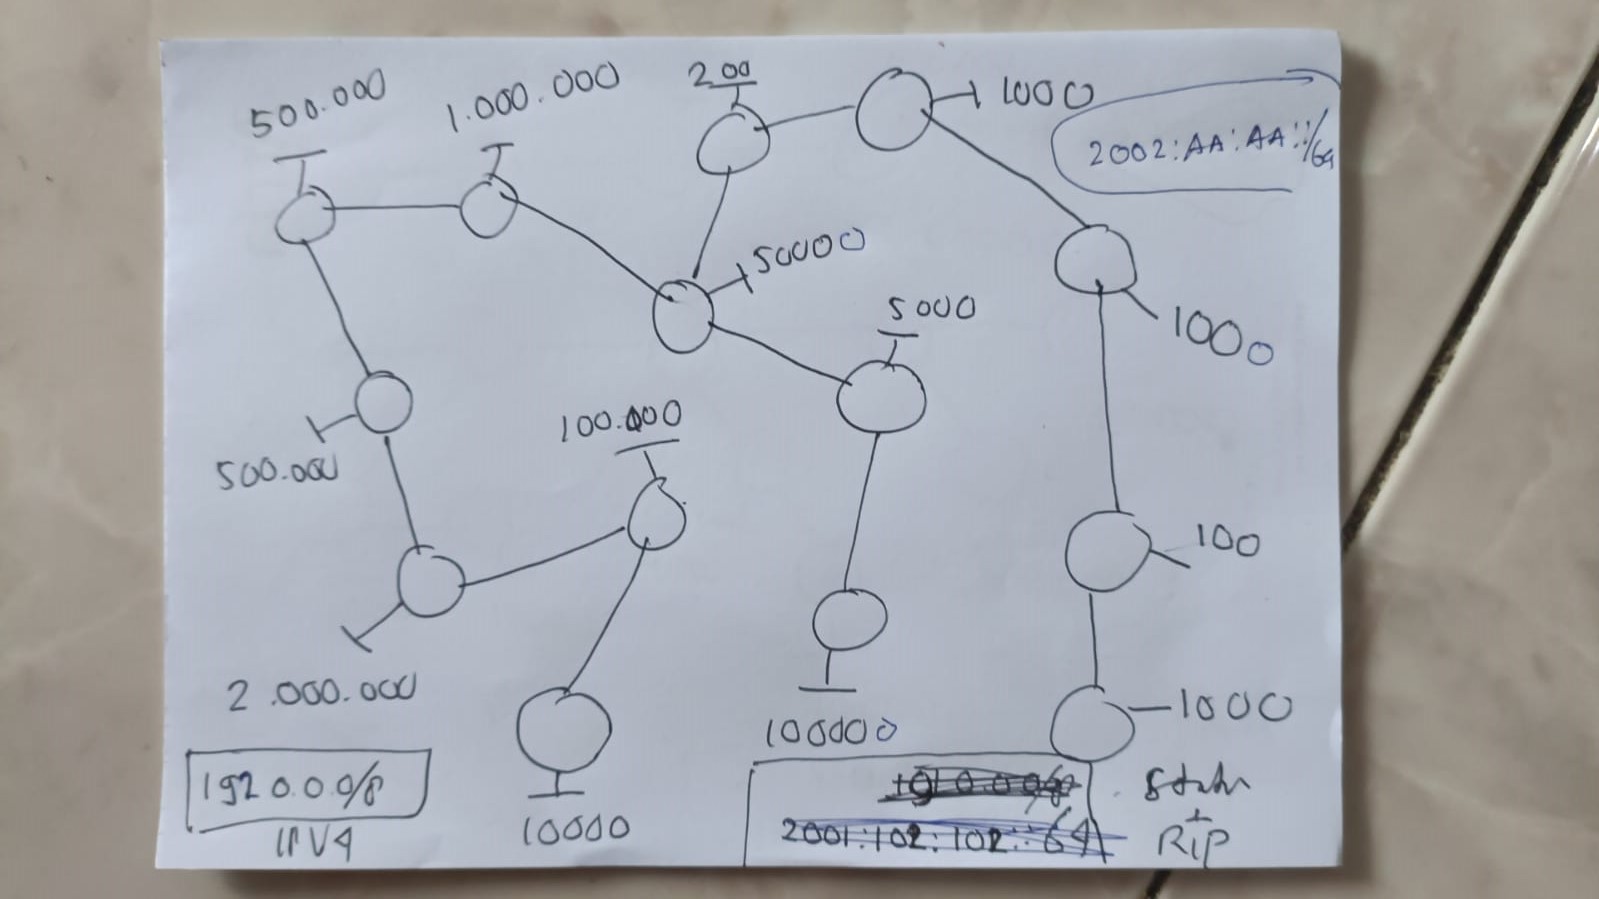 500.000
1.000.000
200
1000
2002:AA:AA::/64
50000
1000
5000
100.000
500.000
100
2.000.000
1000
100000
192.0.0.0/8
IPV4
10000
2001:102:102::64
RIP